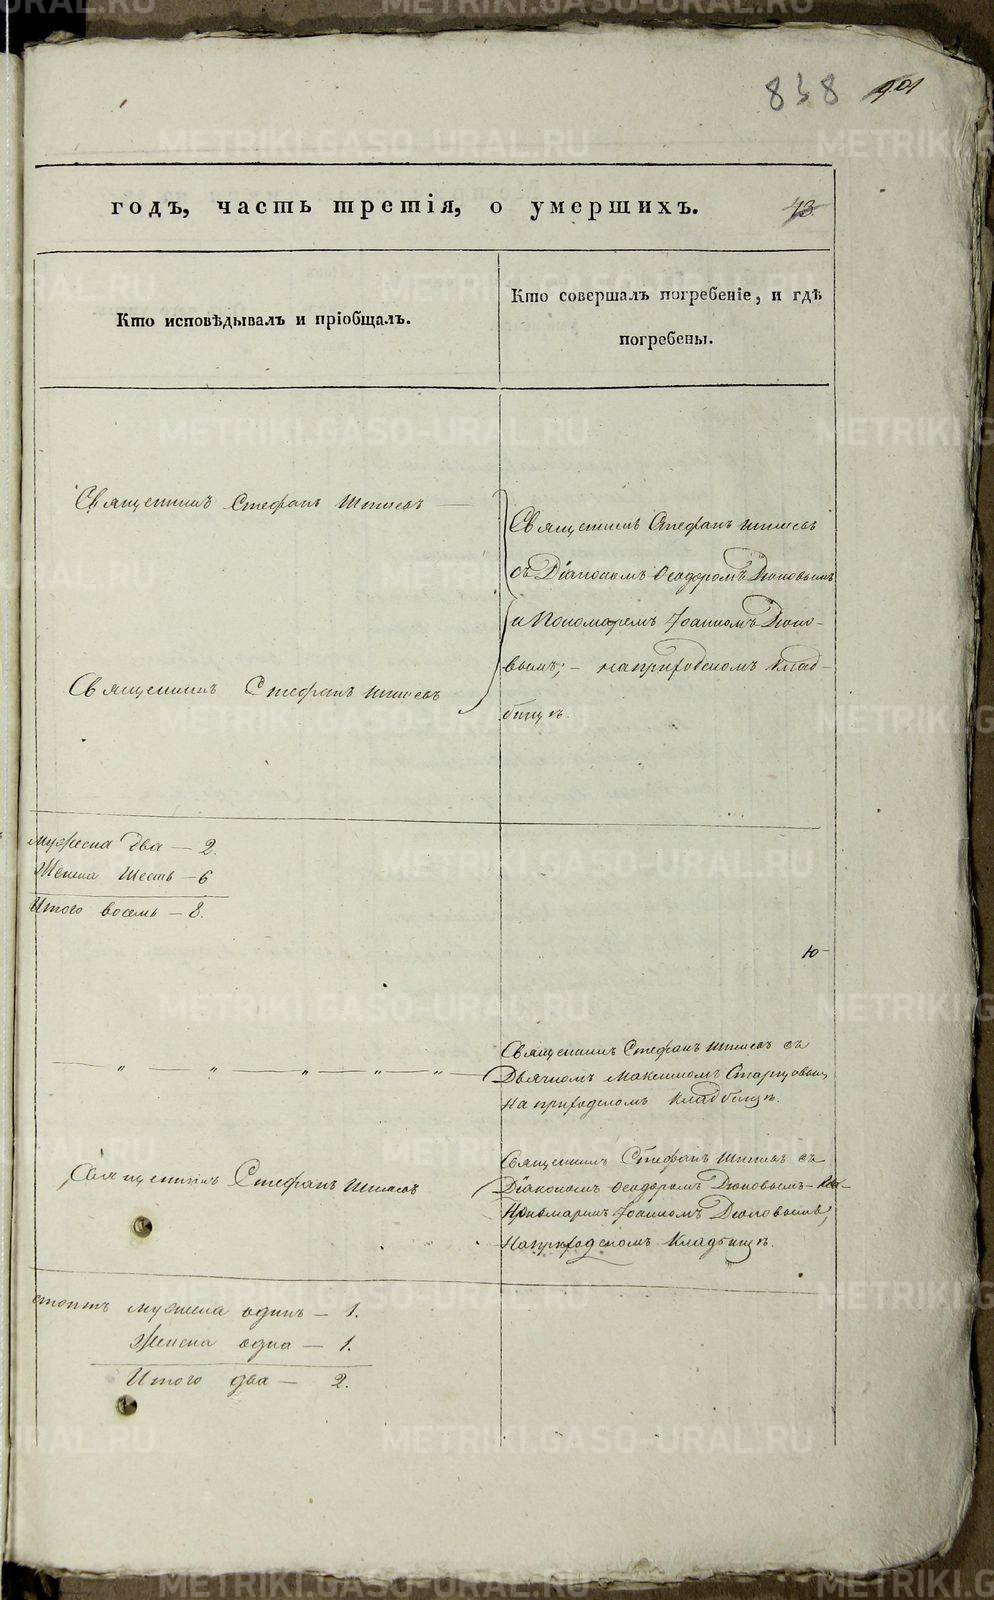 838 901
годъ, часть третія, о умершихъ. 43
Кто исповѣдывалъ и пріобщалъ.
Кто совершалъ погребеніе, и гдѣ
погребены.
Священникъ Стефанъ
Священникъ Стефанъ
Священникъ Стефанъ
съ Діакономъ Ѳеодоромъ Дюповымъ
и Пономаремъ Іоанномъ Дюпо-
вымъ; - на приходскомъ клад-
бищѣ.
мужеска два — 2.
Женска шесть — 6
Итого восемь — 8.
Ю
— „ — „ — „ — „ — „ —
Священникъ Стефанъ съ
Дьячкомъ Максимомъ Старцовым,
на приходскомъ кладбищѣ.
Священникъ Стефанъ
Священникъ Стефанъ съ
Діакономъ Ѳеодоромъ Дюповымъ
Пономаремъ Іоанномъ Дюповымъ,
на приходскомъ кладбищѣ.
мужеска одинъ — 1.
Женска одна — 1.
Итого два — 2.
METRIKI.GASO-URAL.RU